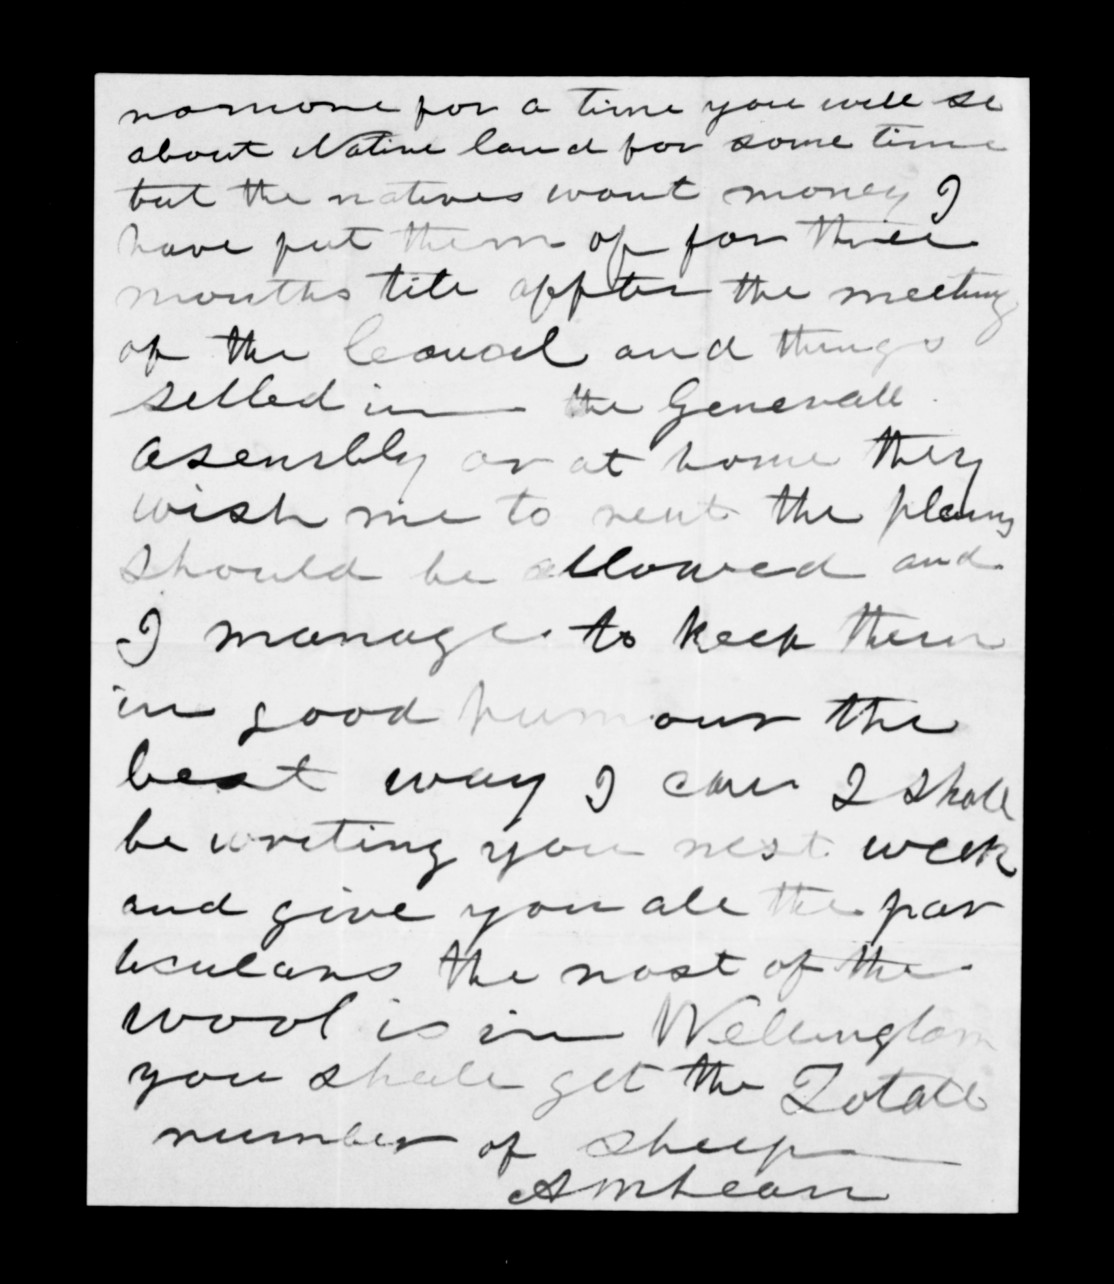 nomore for a time you will se
about Native land for some time
but the natives want money I
have put them of for three
months tile appter the meeting
of the Couocil and things
selled in the Generall
Asembly or at home they
wish me to rent the plains
should be allowed and
I manage to keep them
in good humour the
best way I can I shall
be writing you nest week
and give you all the par
ticulars the most of the
wool is in Wellington
you shall get the Totall
number of sheep
AMcLean